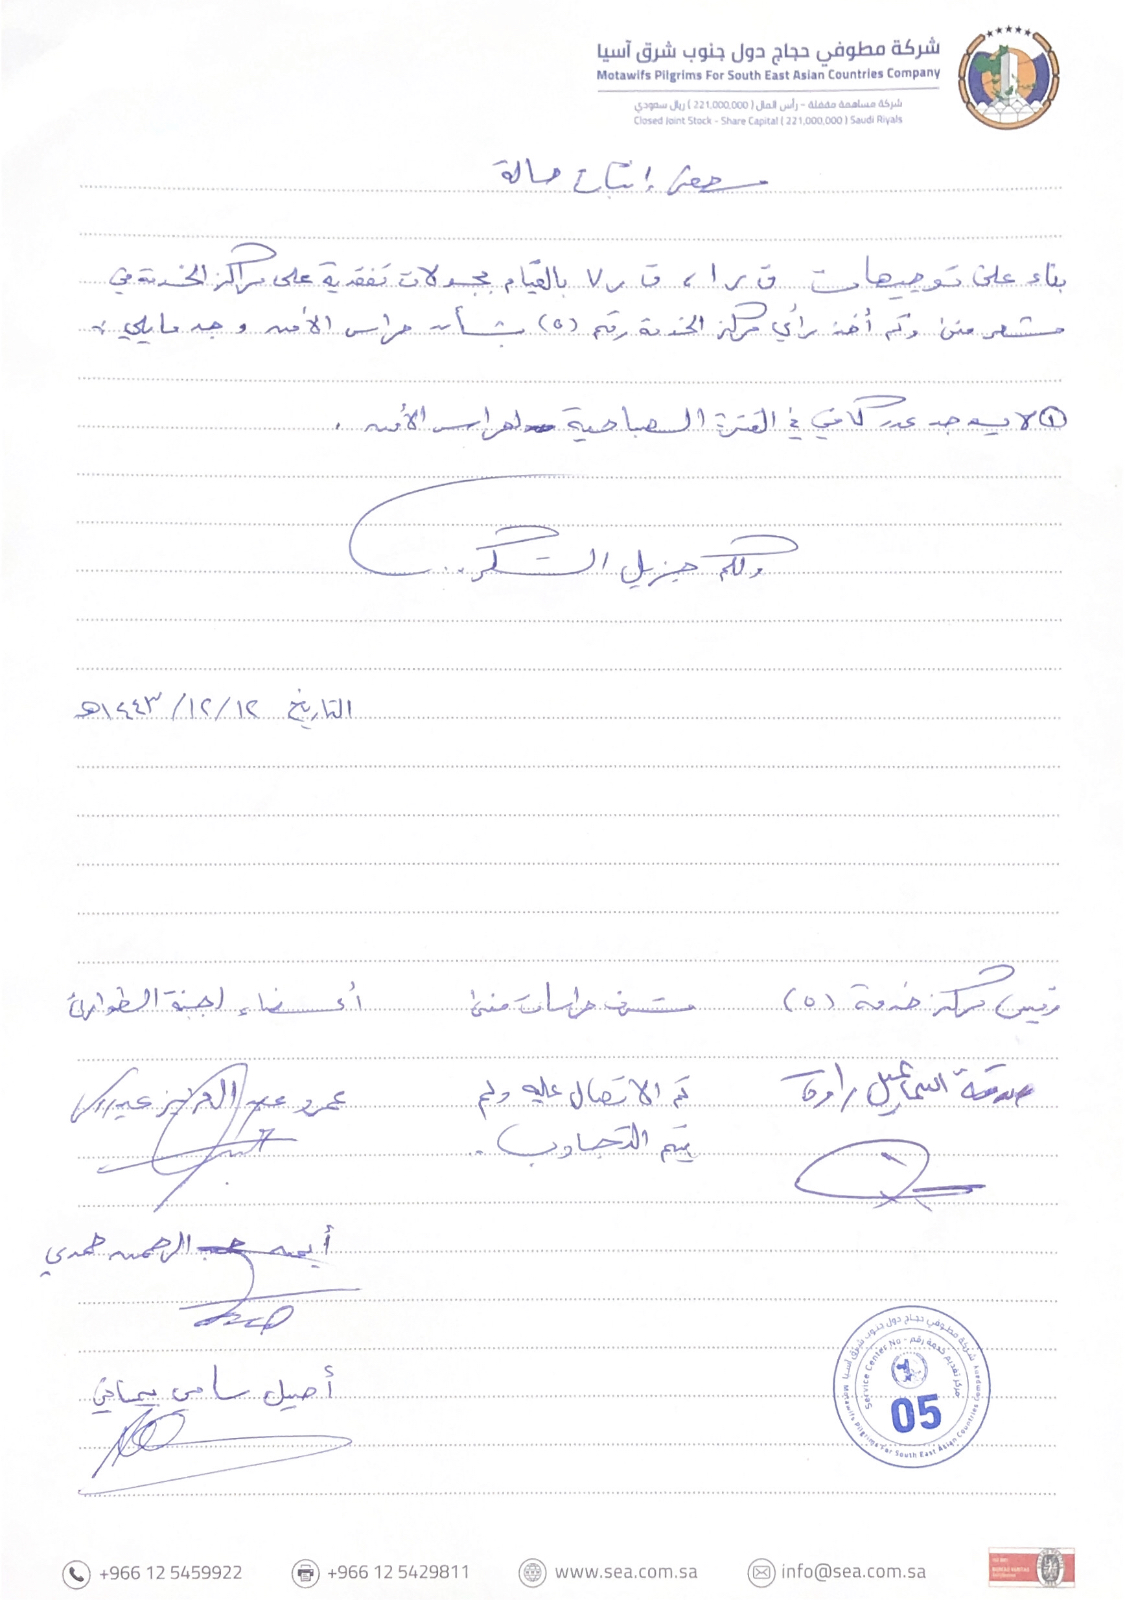 شركة مطوفي حجاج دول جنوب شرق آسيا
Motawifs Pilgrims For South East Asian Countries Company
شركة مساهمة مقفلة - رأس المال ( 221,000,000 ) ريال سعودي
Closed Joint Stock - Share Capital ( 221,000,000 ) Saudi Riyals
محضر إثبات حالة
بناء على توجيهات ق ر ١ ، ق ر ٧ بالقيام بجولات تفقدية على مراكز الخدمة في
مشعر منى وتم أخذ رأي مركز الخدمة رقم (٥) بشأن حراس الأمن وجد مايلي :
١ لا يوجد عدد كافي في الفترة الصباحية لحراس الأمن .
ولكم جزيل الشكر ..
التاريخ ١٢/١٢/١٤٤٣هـ
رئيس مركز خدمة (٥) مشرف حراسات منى أعضاء لجنة الطوارئ
صدقة اسماعيل تم الاتصال عليه ولم عمرو عبد العزيز
يتم التجاوب ..
أيمن عبد الرحمن حمدي
أصيل سامي يماني
شركة مطوفي حجاج دول جنوب شرق آسيا
مركز تقديم خدمة رقم - Service Center No
05
Motawifs Pilgrims For South East Asian Countries Company
+966 12 5459922 +966 12 5429811 www.sea.com.sa info@sea.com.sa